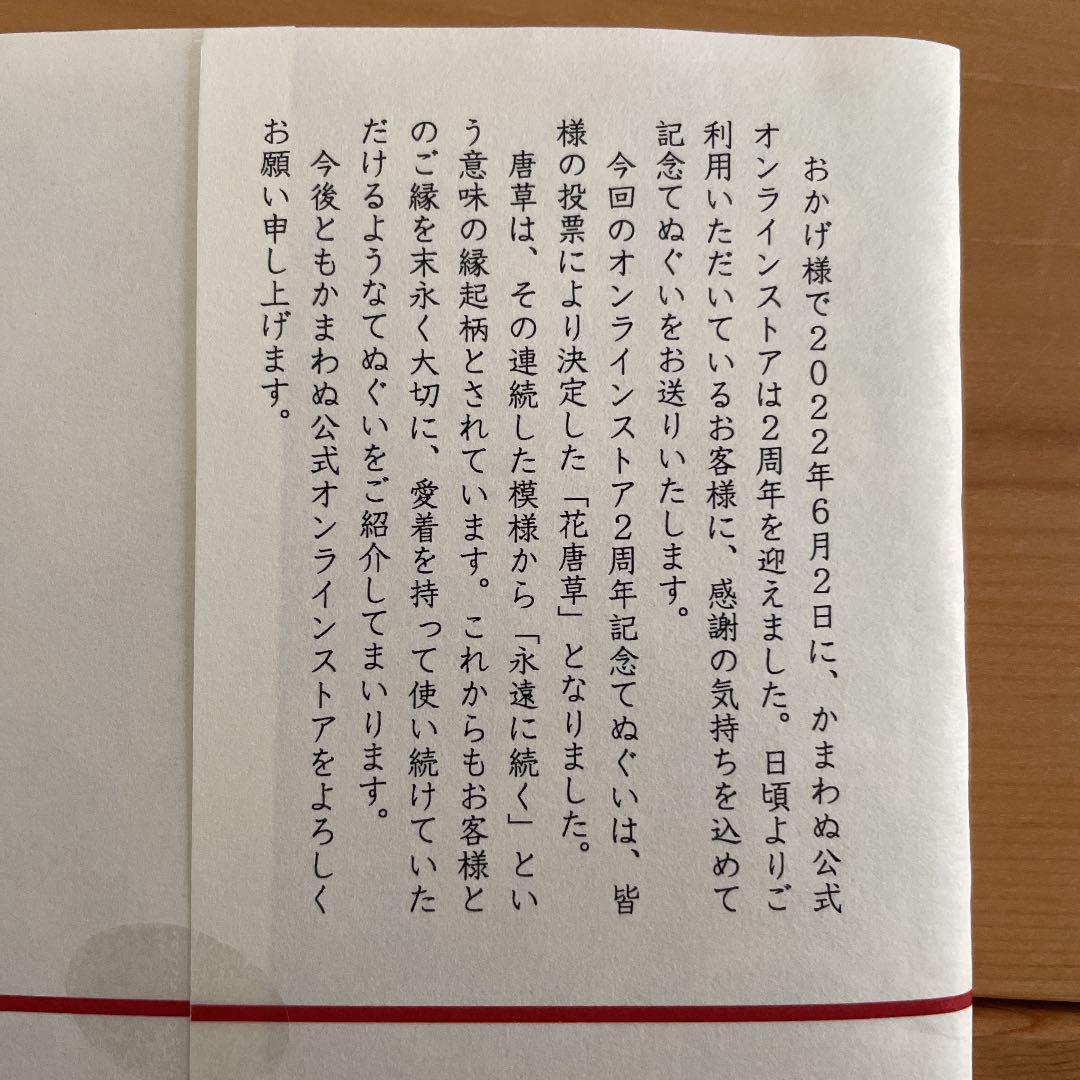 おかげ様で2022年6月2日に、かまわぬ公式
オンラインストアは2周年を迎えました。日頃よりご
利用いただいているお客様に、感謝の気持ちを込めて
記念てぬぐいをお送りいたします。
今回のオンラインストア2周年記念てぬぐいは、皆
様の投票により決定した「花唐草」となりました。
唐草は、その連続した模様から「永遠に続く」とい
う意味の縁起柄とされています。これからもお客様と
のご縁を末永く大切に、愛着を持って使い続けていた
だけるようなてぬぐいをご紹介してまいります。
今後ともかまわぬ公式オンラインストアをよろしく
お願い申し上げます。